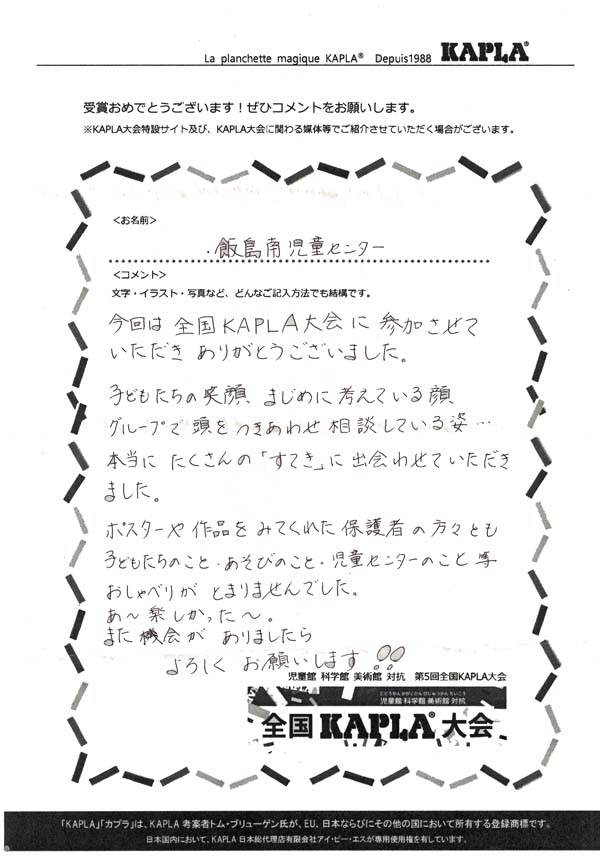 La planchette magique KAPLA® Depuis1988 KAPLA®
受賞おめでとうございます！ぜひコメントをお願いします。
※KAPLA大会特設サイト及び、KAPLA大会に関わる媒体等でご紹介させていただく場合がございます。
<お名前>
飯島南児童センター
<コメント>
文字・イラスト・写真など、どんなご記入方法でも結構です。
今回は 全国KAPLA大会に 参加させて
いただき ありがとうございました。
子どもたちの笑顔、まじめに考えている顔
グループで 頭をつきあわせ 相談している姿…
本当に たくさんの「すてき」に出会わせていただき
ました。
ポスターや 作品を みてくれた 保護者の方々とも
子どもたちのこと・あそびのこと・児童センターのこと 等
おしゃべりが とまりませんでした。
あ〜楽しかった〜。
また 機会が ありましたら
よろしく お願いします!!
児童館 科学館 美術館 対抗 第5回全国KAPLA大会
じどうかん かがくかん びじゅつかん たいこう
児童館 科学館 美術館 対抗
全国 KAPLA® 大会
「KAPLA」「カプラ」は、KAPLA 考案者トム・ブリューゲン氏が、EU、日本ならびにその他の国において所有する登録商標です。
日本国内において、KAPLA 日本総代理店有限会社アイ・ピー・エスが専用使用権を有しています。